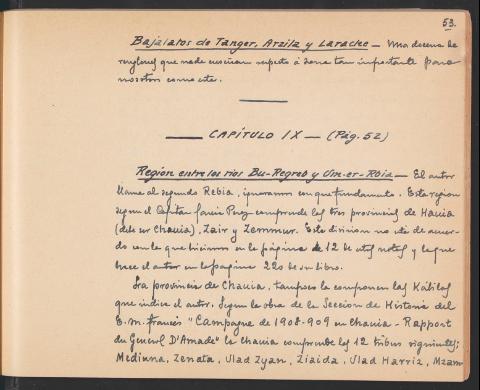 53.
Bajalatos de Tanger, Arzila y Larache — Una decena de
renglones que nada enseñan respeto á zona tan importante para
nosotros como este.
CAPÍTULO IX — (Pág. 52)
Región entre los rios Bu-Regreb y Um-er-Rbia — El autor
llama al segundo Rebia, ignoramos con que fundamento. Esta region
segun el Capitan Garcia Perez comprende las tres provincias de Hauia
(debe ser Chauia), Zair y Zemmur. Esta division no está de acuer-
do con la que hicimos en la página 12 de estas notas y la que
hace el autor en la pagina 220 de su libro.
La provincia de Chauia, tampoco la componen las Kábilas
que indica el autor. Segun la obra de la Seccion de Historia del
E.M. francés "Campagne de 1908-909 en Chauia - Rapport
du General D'Amade" la Chauia comprende las 12 tribus siguientes;
Mediuna, Zenata, Ulad Zyan, Ziaida, Ulad Harriz, Mzam